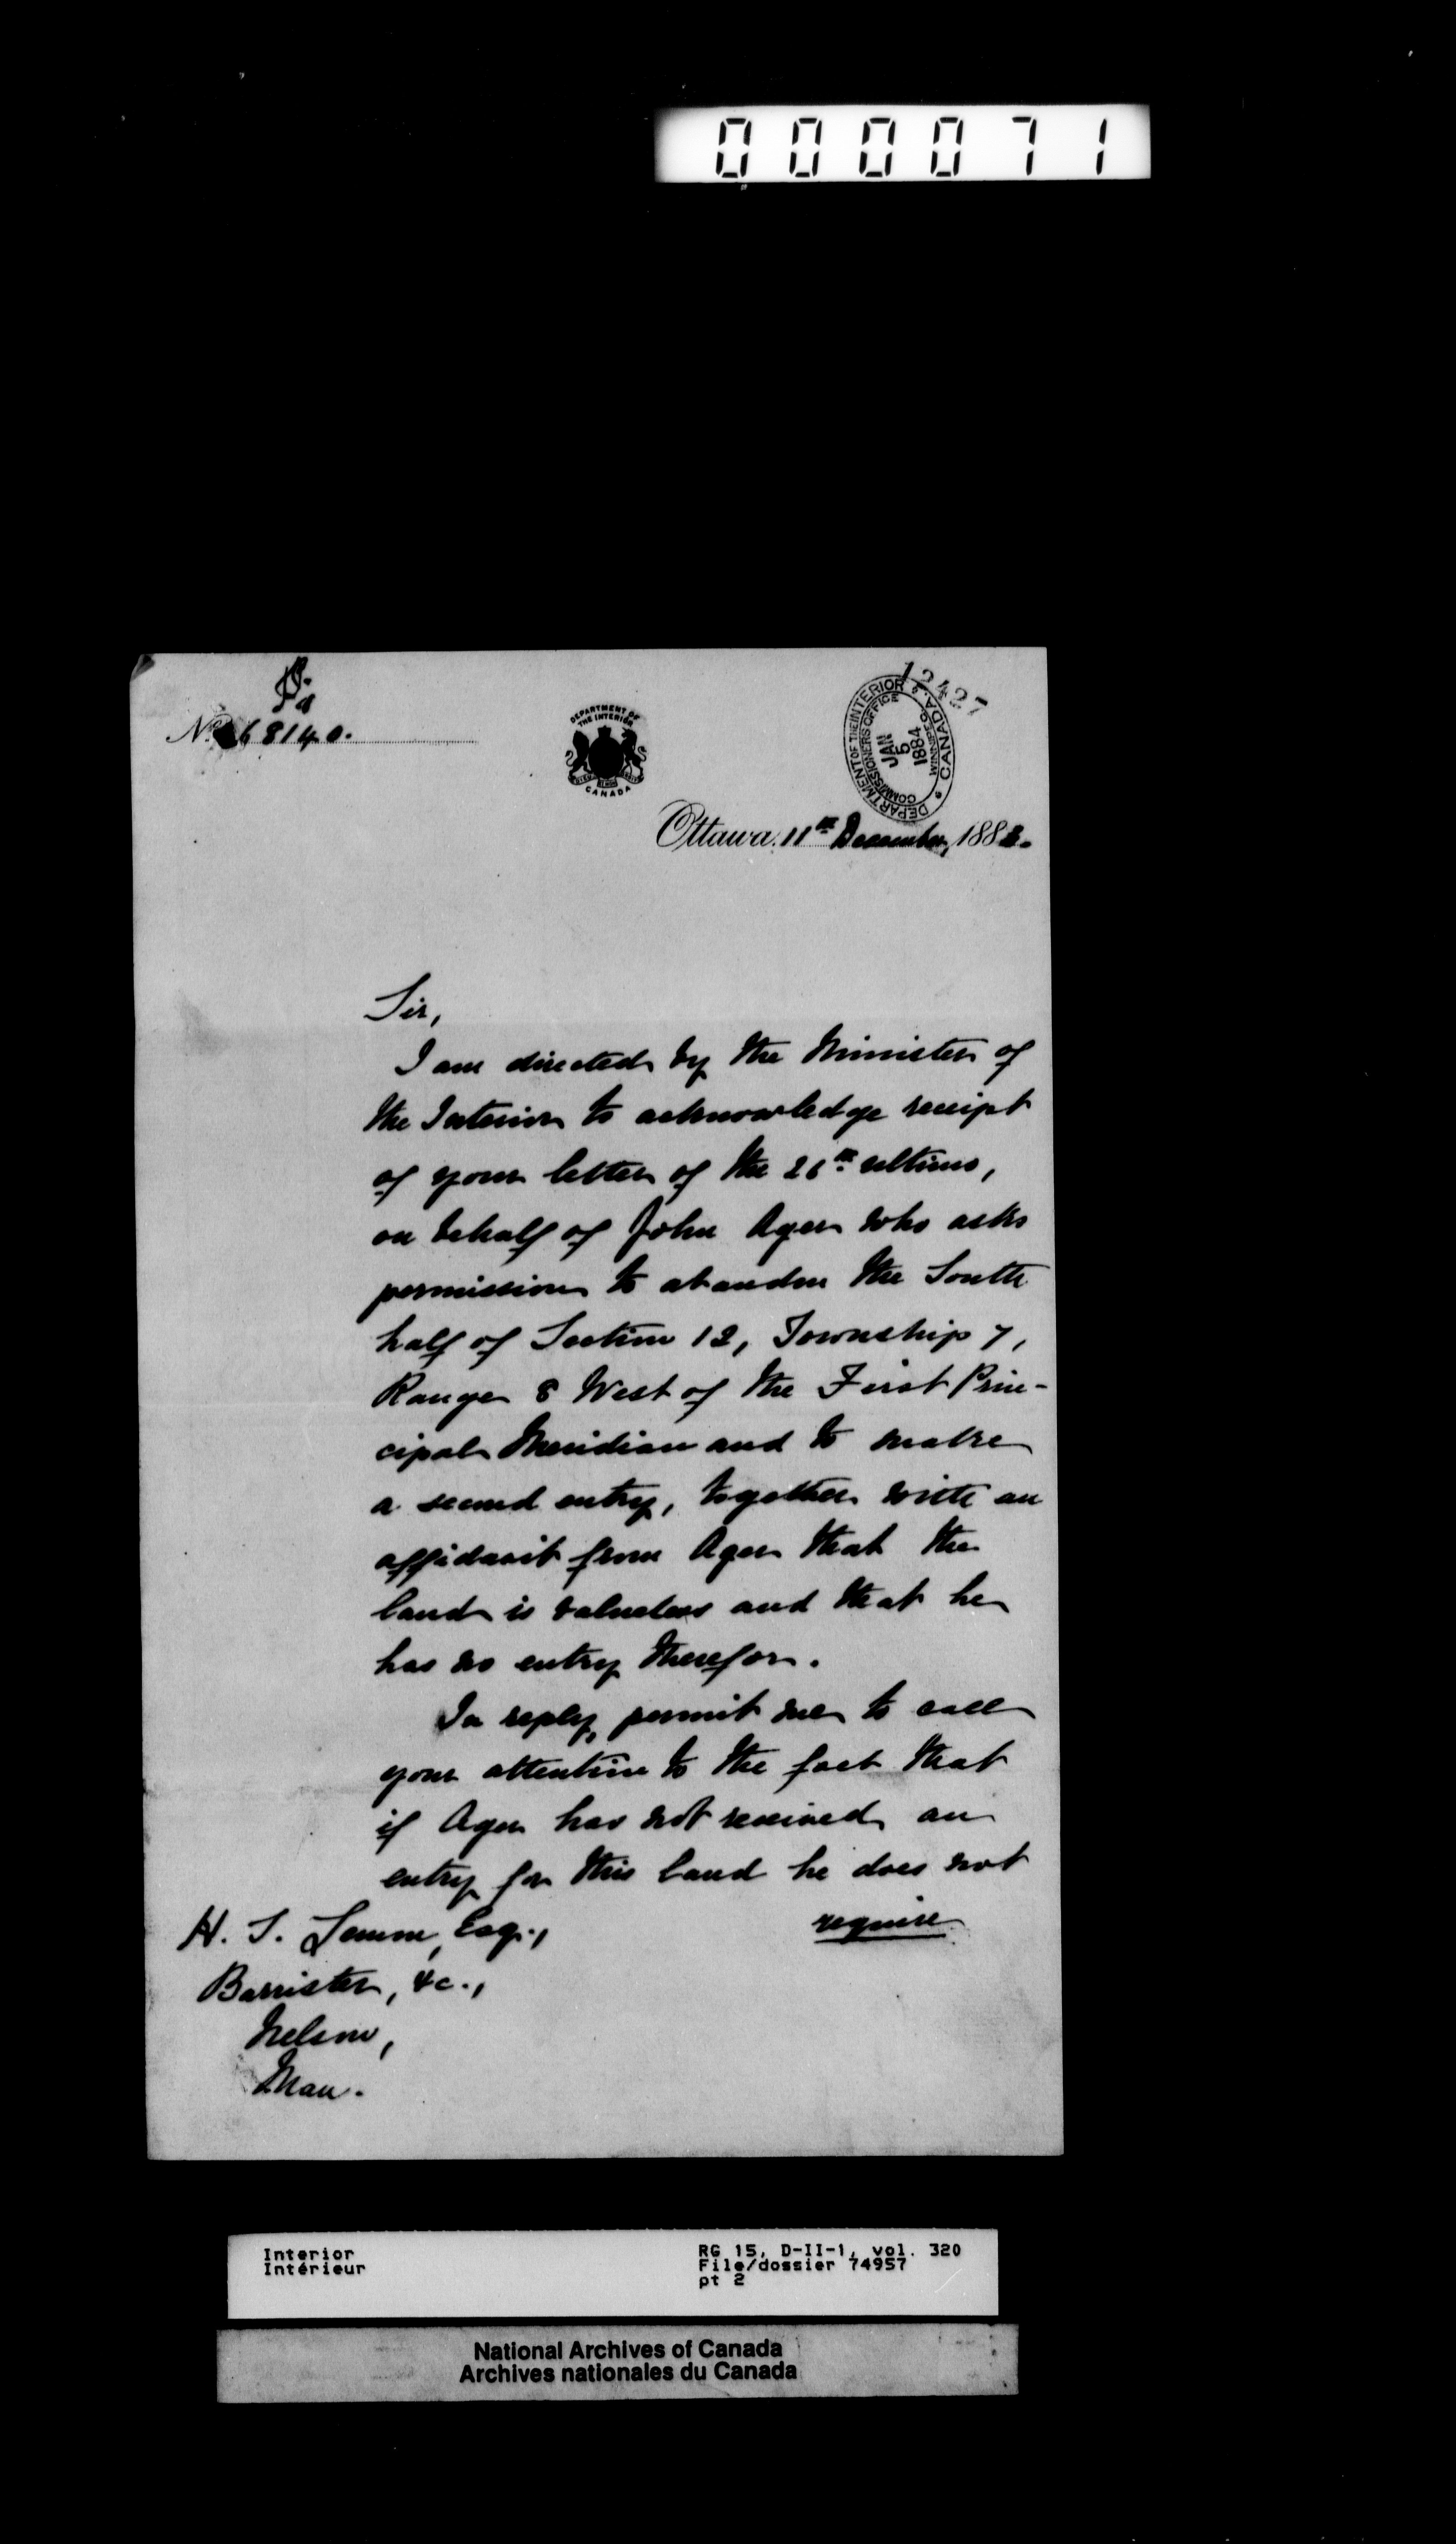 000071
No. 68140.
DEPARTMENT OF
THE INTERIOR
CANADA
12427
DEPARTMENT OF THE INTERIOR
COMMISSIONERS OFFICE
JAN
5
1884
WINNIPEG.
CANADA.
Ottawa, 11th December, 1883.
Sir,
I am directed by the Minister of
the Interior to acknowledge receipt
of your letter of the 26th ultimo,
on behalf of John Ager who asks
permission to abandon the South
half of Section 12, Township 7,
Range 8 West of the First Prin-
cipal Meridian and to make
a second entry, together with an
affidavit from Ager that the
land is valueless and that he
has no entry therefor.
In reply, permit me to call
your attention to the fact that
if Ager has not received an
entry for this land he does not
require
H. Esq.,
Barrister, &c.,
Nelson,
Man.
Interior
Intérieur
RG 15, D-II-1, vol. 320
File/dossier 74957
pt 2
National Archives of Canada
Archives nationales du Canada